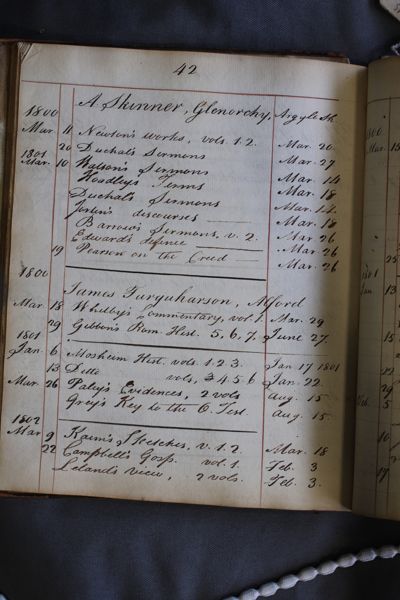 42
1800 A. Skinner, Glenorchy, Argyle Sh
Mar. 11 Newton's works, vols. 1. 2. Mar. 20
20 Duchal's Sermons Mar. 27
1801
Mar. 10 Watson's Sermons Mar. 14
Hoadley's Terms Mar. 18
Duchal's Sermons Mar. 14
Jortin's discourses Mar. 18
Barrow's Sermons, v. 2. Mar. 26
Edward's defence Mar. 26
19 Pearson on the Creed Mar. 26
1800
James Farquharson, Alford
Mar. 18 Whitby's Commentary, vol. 1. Mar. 29
29 Gibbon's Rom. Hist. 5, 6, 7. June 27.
1801
Jan. 6 Mosheim Hist. vols. 1. 2. 3. Jan 17 1801
13 Ditto vols, 3 4 5 6 Jan. 22.
Mar. 26 Paley's Evidences, 2 vols Aug. 15
Grey's Key to the O. Test. Aug. 15.
1802
Mar. 9 Kaim's Sketches, v. 1. 2. Mar. 18
22 Campbell's Gosp. vol. 1. Feb. 3
Leland's View, 2 vols. Feb. 3.